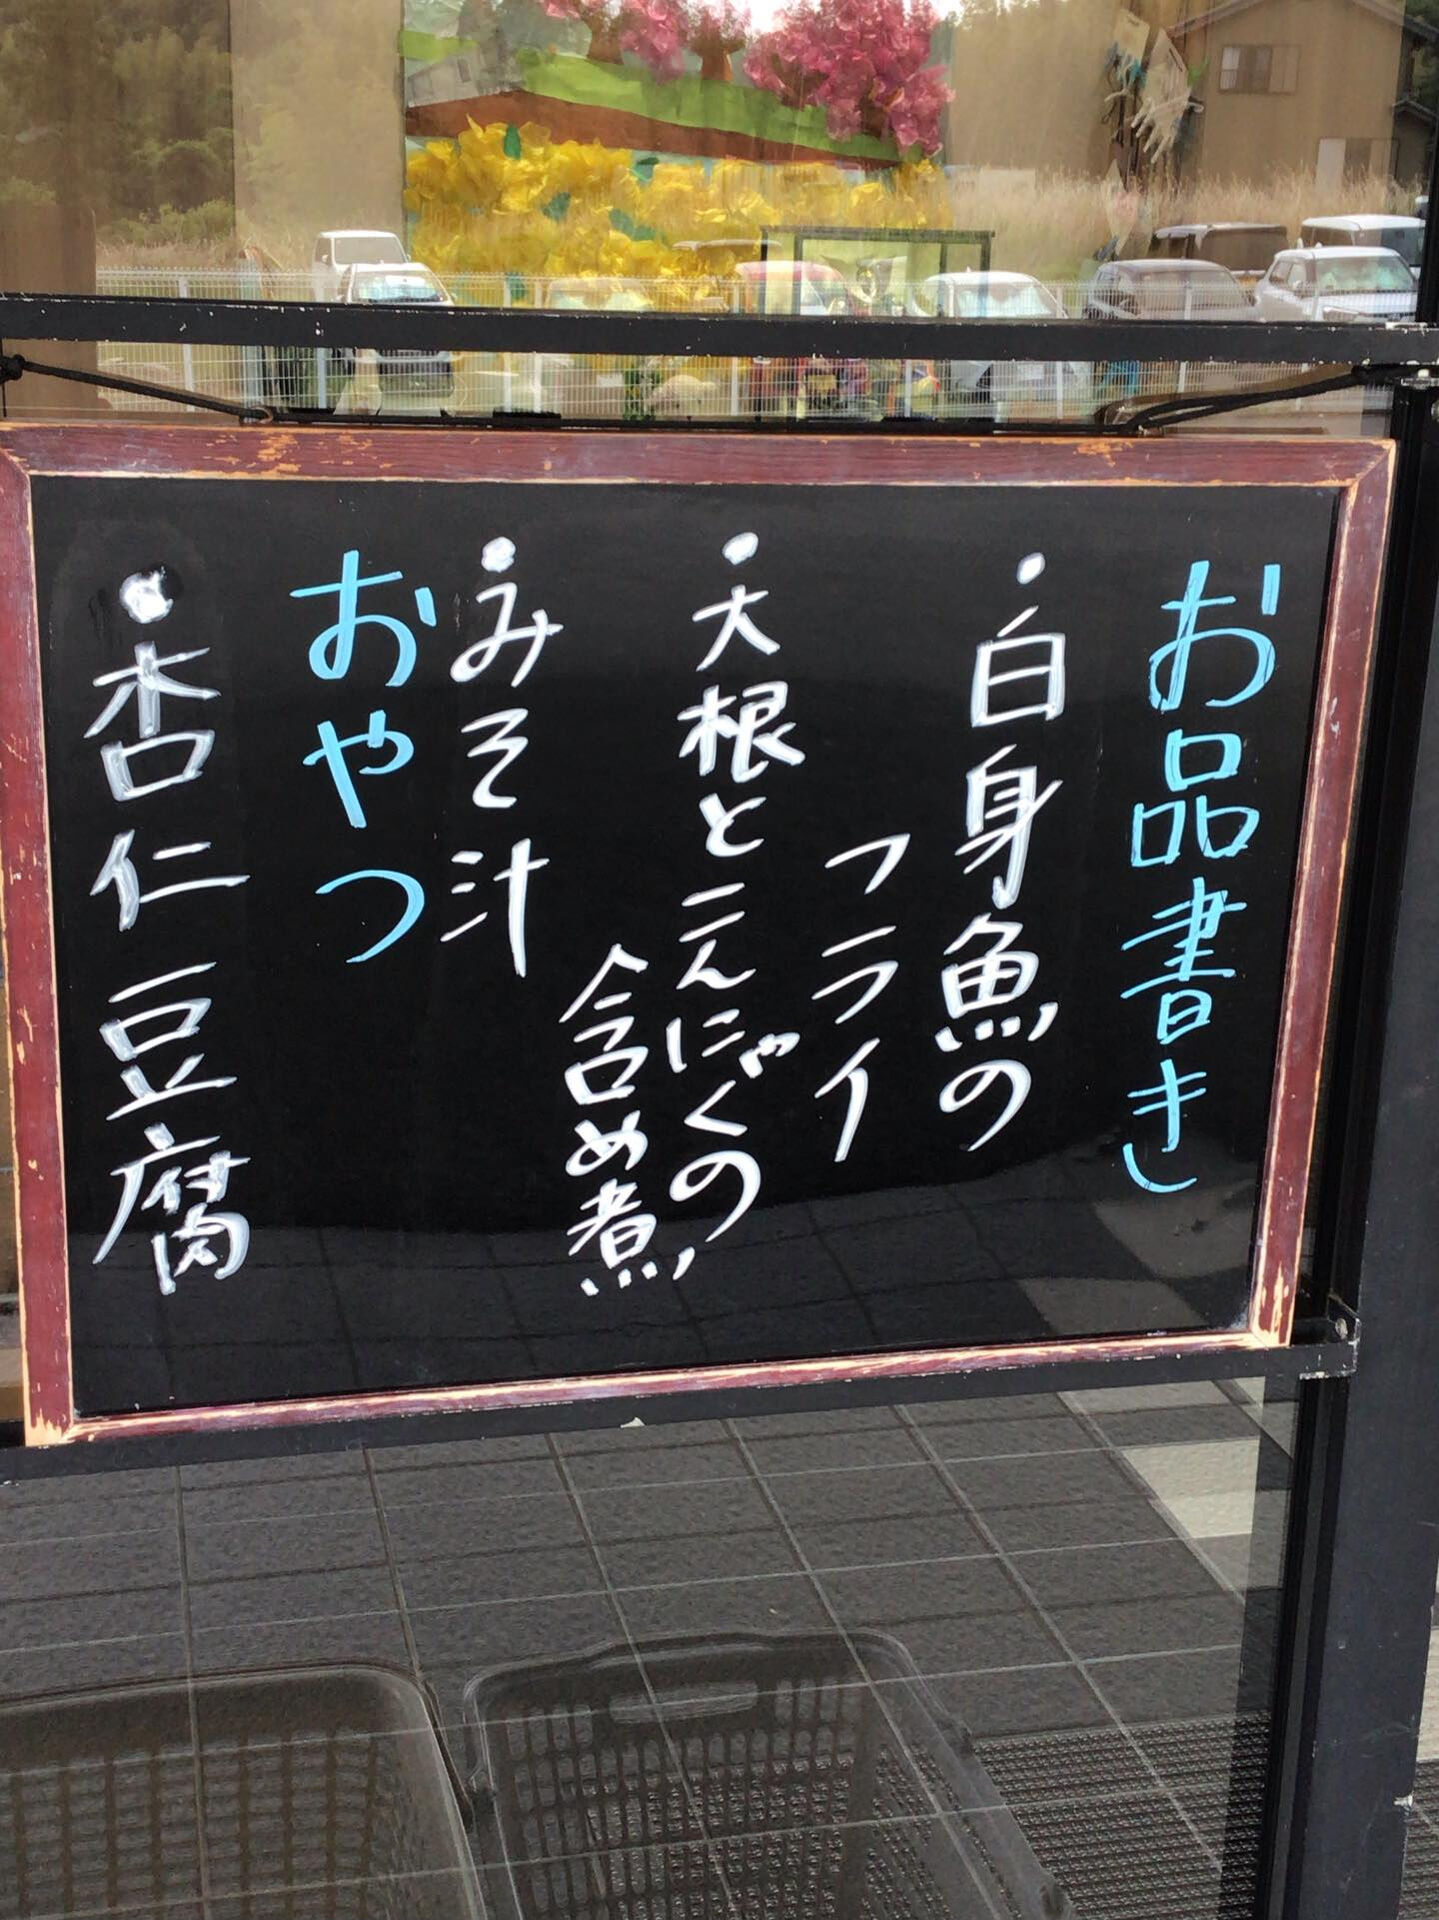 お品書き
・白身魚の
フライ
・大根とこんにゃくの
含め煮
・みそ汁
おやつ
・杏仁豆腐